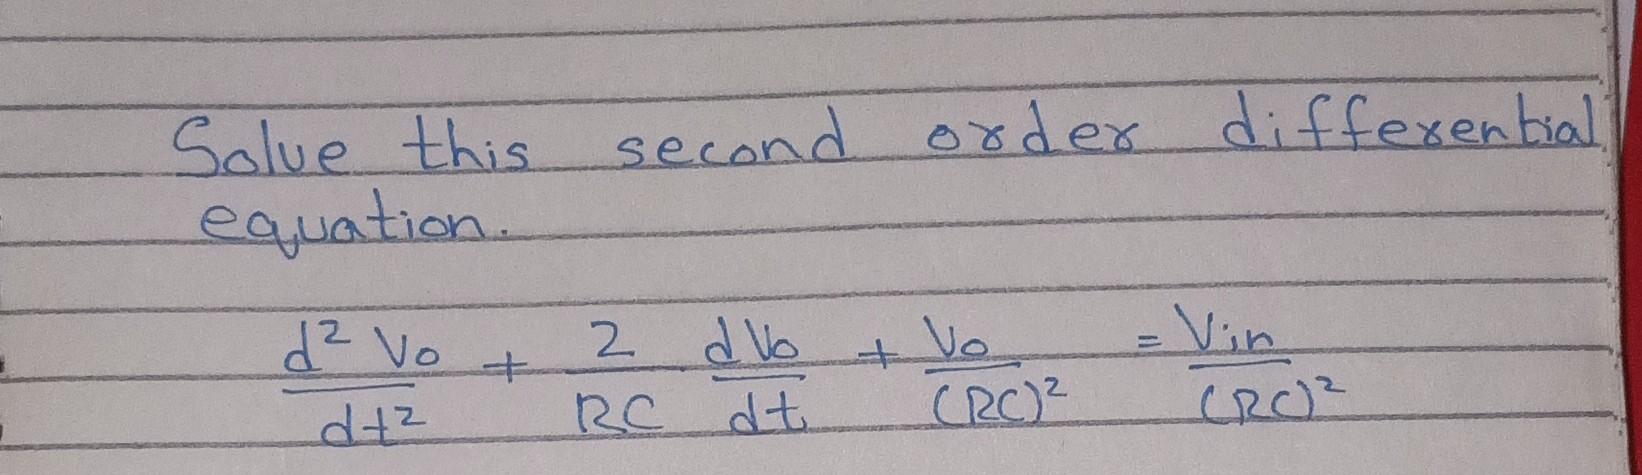 Solve this second order differential
equation.
d² Vo/dt² + 2/RC dVo/dt + Vo/(RC)² = Vin/(RC)²